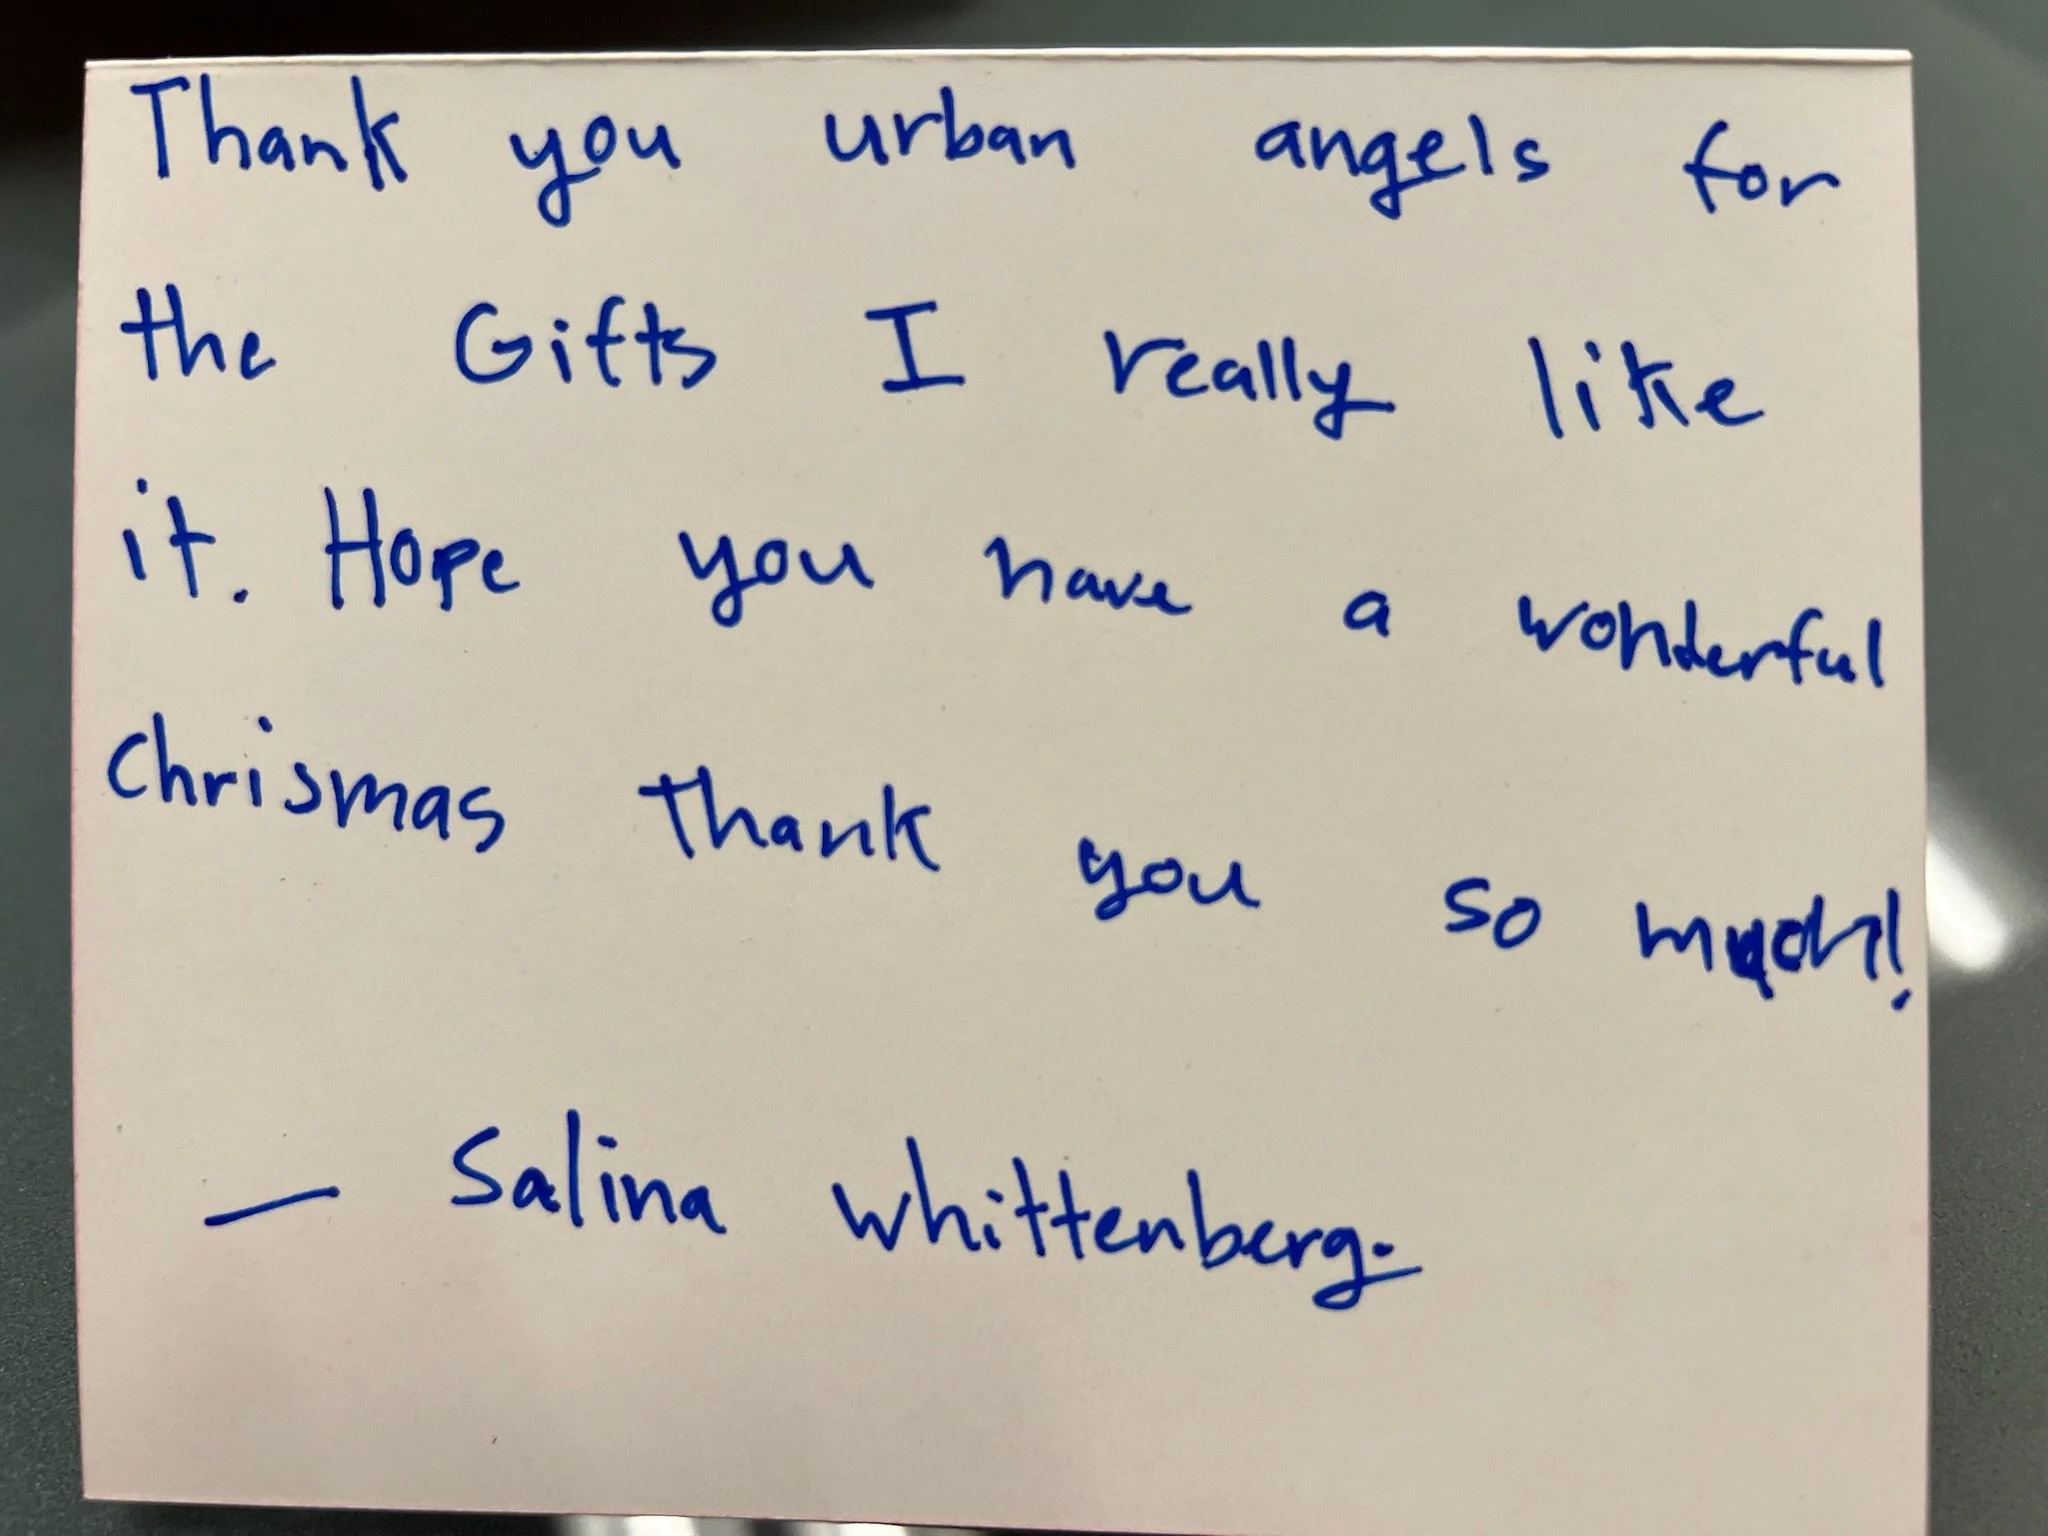 Thank you urban angels for
the Gifts I really like
it. Hope you have a wonderful
Chrismas Thank you so much!
— Salina Whittenberg.